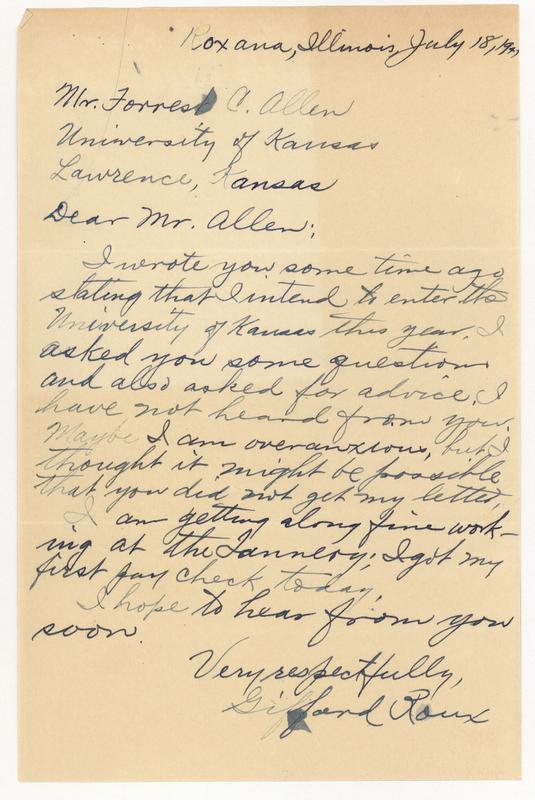 Roxana, Illinois, July 18, 194
Mr. Forrest C. Allen
University of Kansas
Lawrence, Kansas
Dear Mr. Allen:
I wrote you some time ago
stating that I intend to enter the
University of Kansas this year. I
asked you some questions
and also asked for advice. I
have not heard from you.
Maybe I am overanxious, but I
thought it might be possible
that you did not get my letter.
I am getting along fine work-
ing at the Tannery; I got my
first pay check today.
I hope to hear from you
soon.
Very respectfully,
Gifford Roux